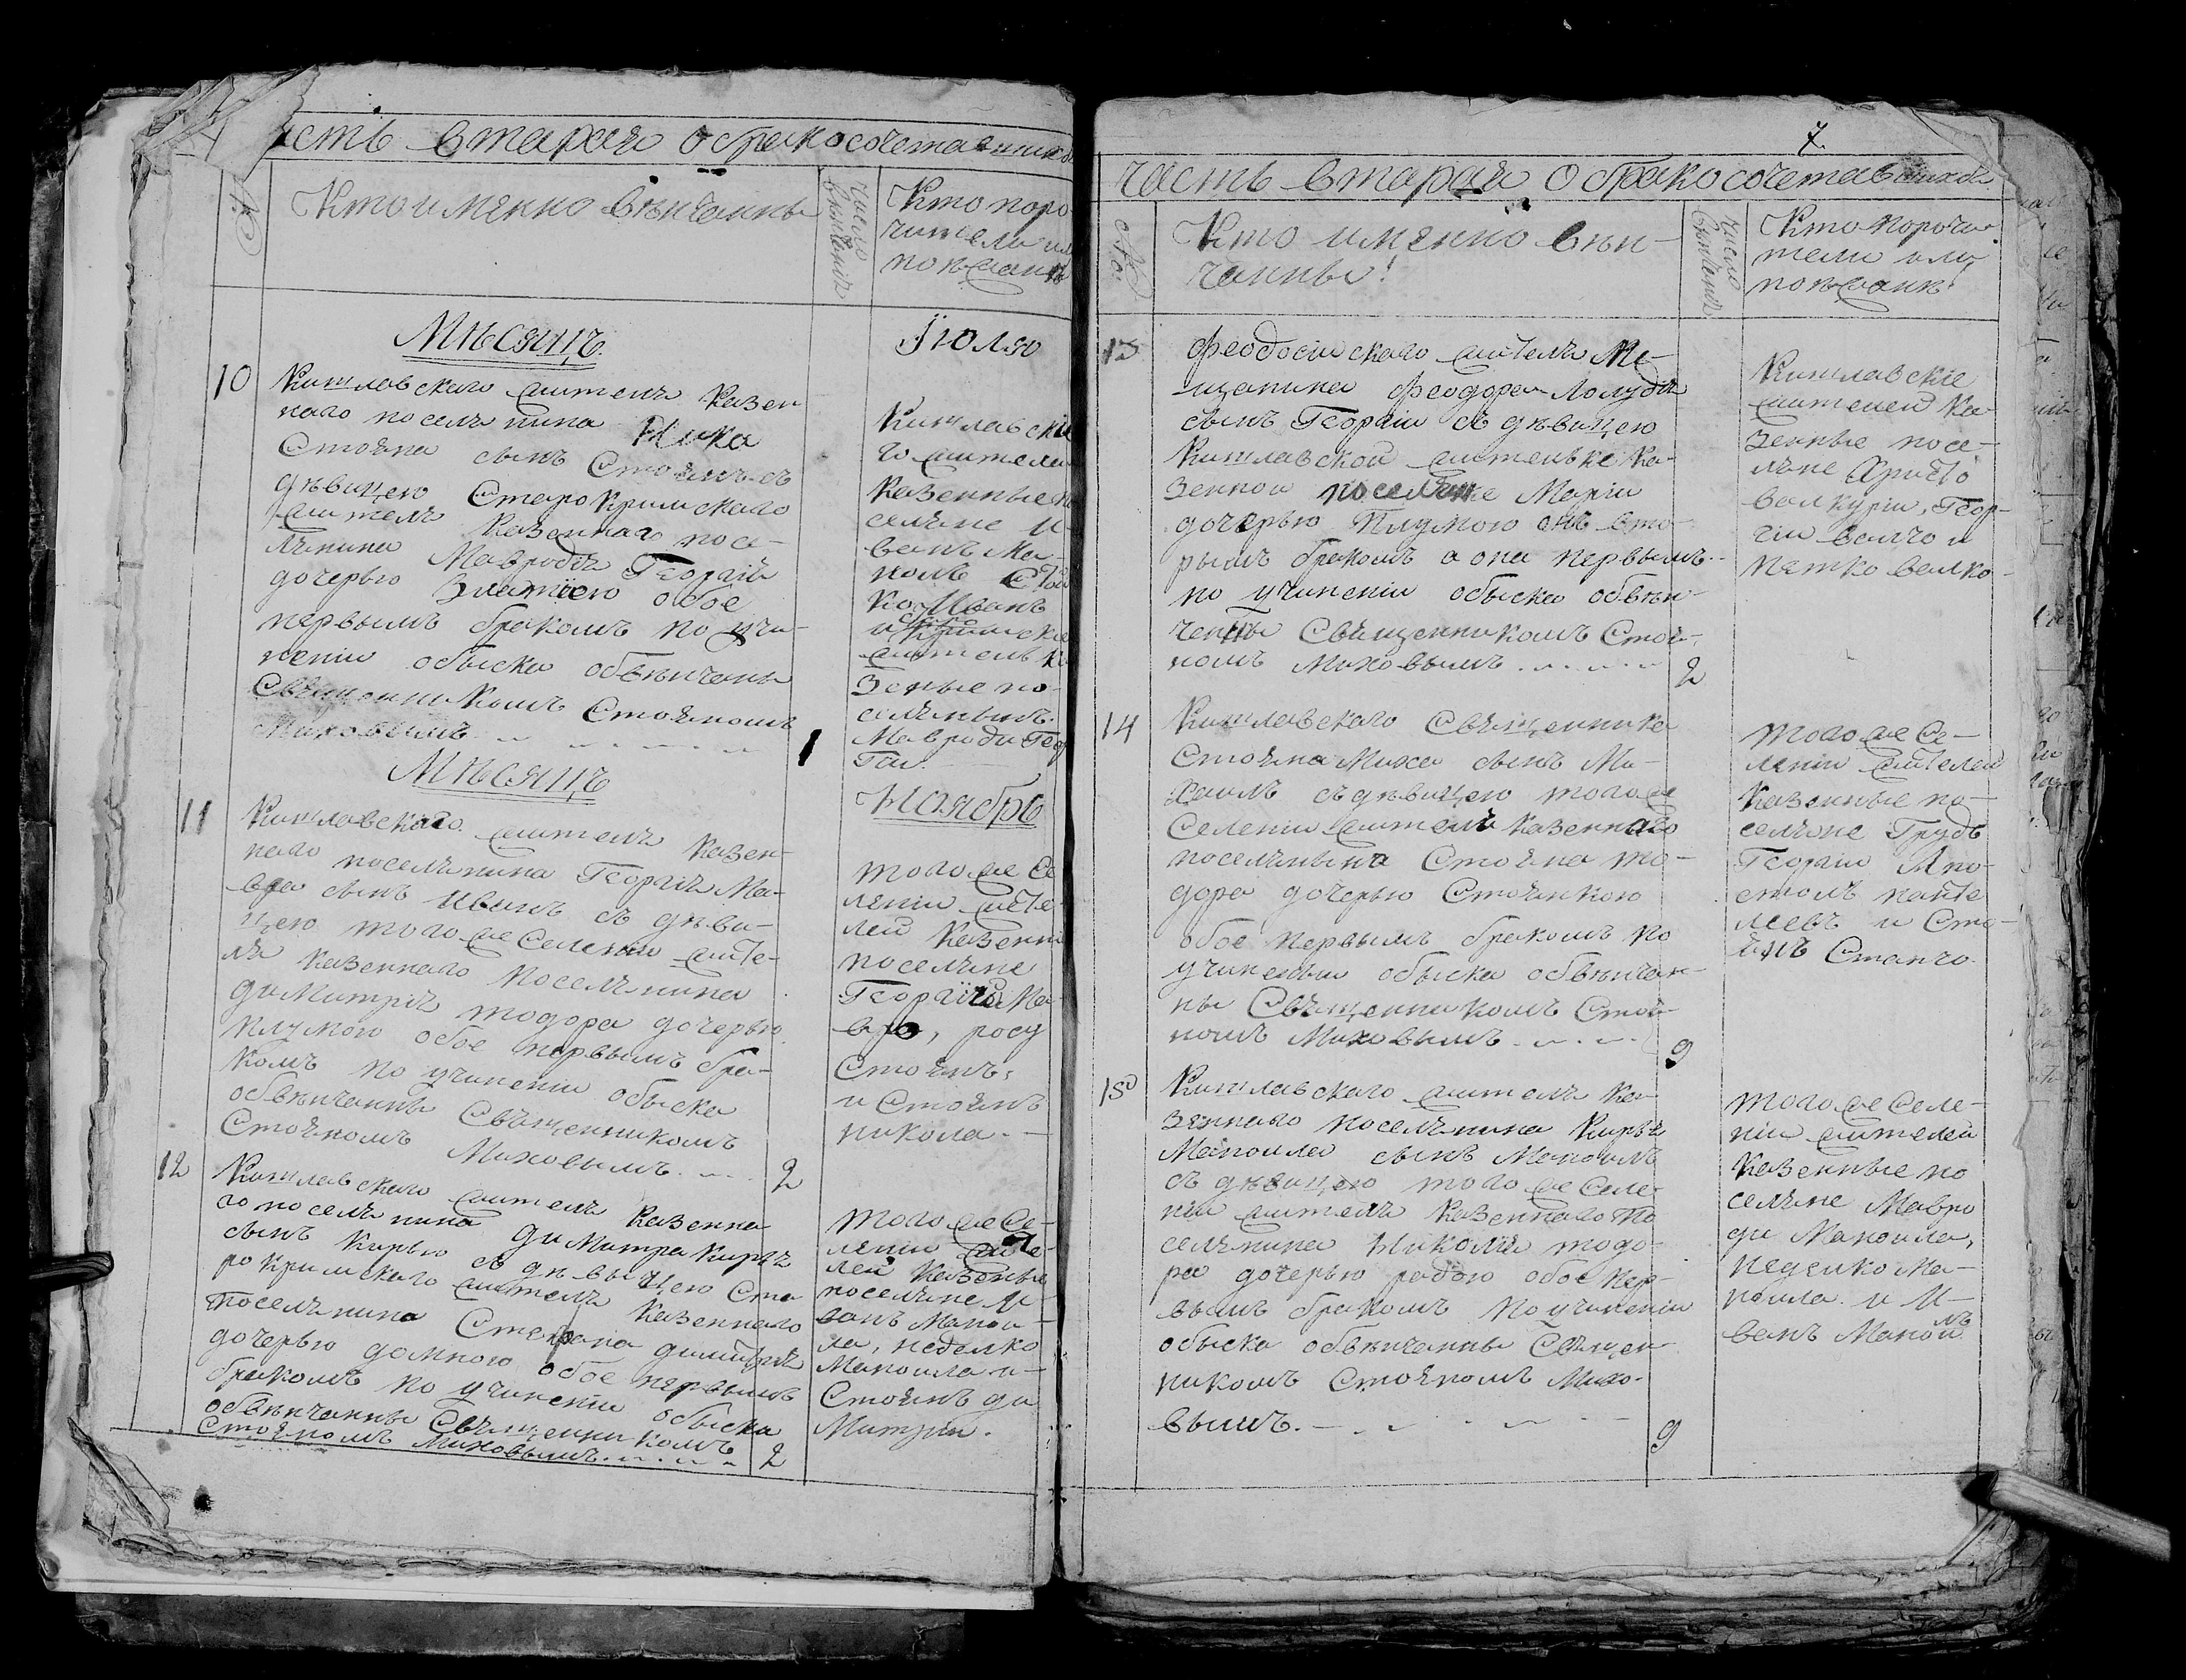 сть втарая о бракосочетавшихся
№
Кто имянно венчанны
число венчания
Кто поро
чители ил
по невѣстѣ
Мѣсяцъ
Июля
10
Кишлавскаго жителя Казен
наго поселянина Ника
Стояна сынъ Стоянъ съ
дѣвицею Старокримскаго
жителя Казеннаго посе-
лянина Мавродія Георгія
дочерью Златïею обое
первымъ бракомъ по учи-
ненiи обыска обвѣнчаны
Священникомъ Стояномъ
Миховымъ
1
Кишлавскïе
го жители
Казенные по
селяне И-
ванъ Ма-
ноль Стоя
ко Иванъ
и Старо Кримские
жители ка
зеные по-
селяныѣ
Мавроди Геор
гии
Мѣсяцъ
Ноябрь
11
Кишлавскаго жителя Казен-
наго поселянина Георгiя Ма-
вра сынъ Иванъ съ дѣви-
цею того же Селенiи жите-
ля Казеннаго поселянина
димитрiя тодора дочерью
плумою обое первымъ бра-
комъ по учиненiи обыска
обвѣнчанны Священникомъ
Стояномъ Миховымъ
2
того же Се
ленiи жите-
лей Казенны
поселяне
Георгiи Ма-
вро, росу
Стоянъ,
и Стоянъ
никола.
12
Кишлавскаго жителя Казенна
го поселянина димитра Кирья
сынъ Кирью съ дѣвыцею Ста
рокримскаго жителя Казеннаго
поселянина Стефана димитрия
дочерью домною обое первымъ
бракомъ по учиненiи обыска
обвѣнчанны Священникомъ
Стояномъ Миховымъ
2
того же Се-
ленiи жите-
лей Казеные
поселяне И-
ванъ Манои-
ла, неделко
Маноила и
Стоянъ ди
Митрiи.
7.
часть втарая о бракосочетавшихся
№.
Кто имянно вен-
чанны!
число венчания
Кто поручи
тели или
по невѣстѣ!
13
феодосiискаго жителя Ме-
щанина Феодора Лолудя
сынъ Георгiи съ дѣвицею
Кишлавской жителькѣ Ка-
зенной поселянке Марiи
дочерью Плумою онъ вто-
рымъ бракомъ а она первымъ
по учиненiи обыска обвѣн-
ченны Священникомъ Стоя-
номъ Миховымъ
2
Кишлавскiе
жителей Ка
зенные посе-
ляне Христо
валкурiи, Геор-
гiи Валчо и
петко валко-
14
Кишлавскаго Священника
Стояна Миха сынъ Ми-
хаилъ съ дѣвицею того же
Селенiи жителя Казеннаго
поселянына Стояна то-
дора дочерью Стоянкою
обое первымъ бракомъ по
учинении обыска обвѣнчан-
ны Священникомъ Стоя-
номъ Миховымъ
9
того же Се-
ленiи жителей
Казенные по-
селяне Грудъ
Георгiи Апо-
столъ панте
леевъ и Сто-
янъ Станчо
15
Кишлавскаго жителя Ка-
зеннаго поселянина Кирья
Маноила сынъ Маноилъ
съ дѣвицею того же Селе-
нiи жителя Казеннаго По
селянина Николая тодо-
ра дочерью радою обое пер-
вымъ бракомъ по учиненiи
обыска обвѣнчанны Священ-
никомъ Стояномъ Михо-
вымъ.
9
того же Селе-
нiи жителей
Казенные по
селяне Мавро
ди Маноила,
неделко Ма-
ноила и И-
ванъ Маноилъ